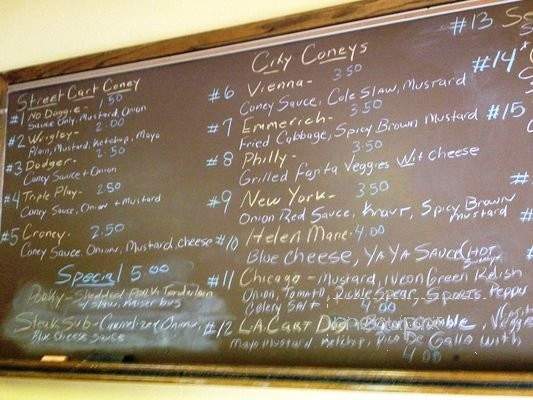 Street Cart Coney
#1 No Doggie - 1.50
Sauce Only, Mustard, Onion
#2 Wrigley - 2.00
Plain, Mustard, Ketchup, Mayo
#3 Dodger - 2.50
Coney Sauce + Onion
#4 Triple Play - 2.50
Coney Sauce, Onion + Mustard
#5 Croney - 2.50
Coney Sauce, Onion, Mustard, cheese
Special 5.00
Porky - Shredded Pork Tenderloin
w/ slaw, Kaiser bus
Steak Sub - Carmelized Onions,
Blue Cheese Sauce
City Coneys
#6 Vienna - 3.50
Coney Sauce, Cole Slaw, Mustard
#7 Emmerich - 3.50
Fried Cabbage, Spicy Brown Mustard
#8 Philly - 3.50
Grilled Fajita Veggies Wit cheese
#9 New York - 3.50
Onion Red Sauce, Kraut, Spicy Brown
mustard
#10 Helen Mane - 4.00
Blue cheese, YA YA Sauce (HOT
#11 Chicago - Mustard, Neon Green Relish
Onion, Tomato, Pickle Spear, Sports Pepper
Celery Salt 4.00
#12 L.A. Cart Dog -
Mayo Mustard Ketchup, Pico De Galla with
4.00
#13
#14
#15
#
#